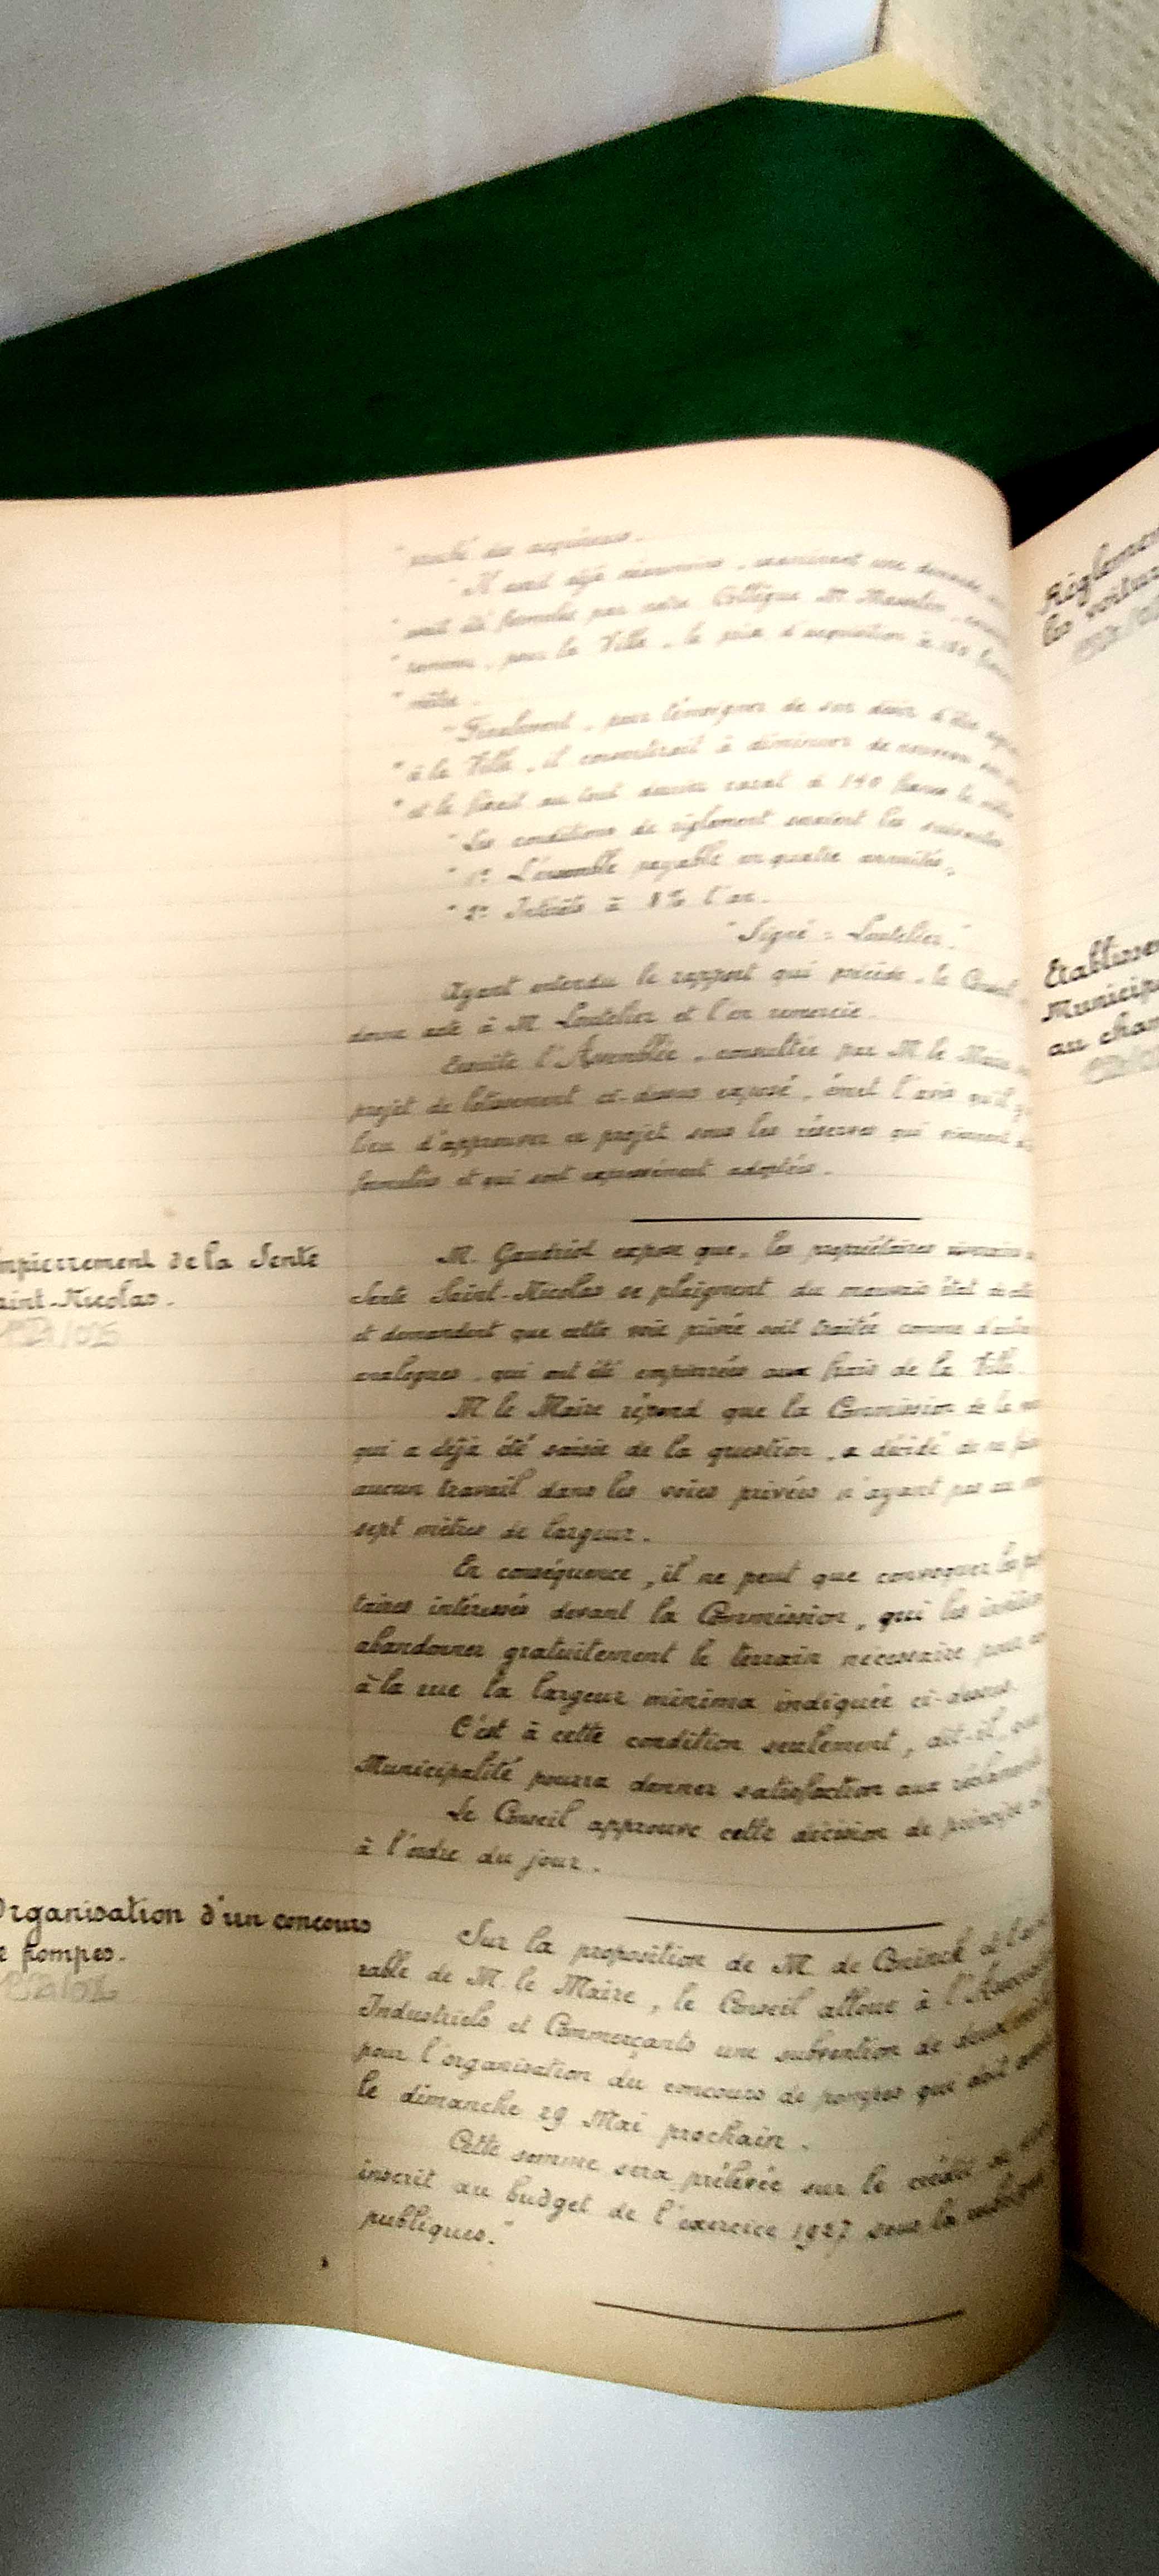 " marché des acquéreurs.
" Il avait déjà néanmoins, examinant une demande
" avait été formulée par notre Collègue M.
" pour la Ville, le prix d'acquisition à
" mètre.
" Finalement, pour témoigner de son désir d'être
" à la Ville, il consentirait à diminuer de nouveau
" et le ferait au tout dernier à 140 francs le mètre
" Les conditions de règlement seraient les suivantes
" 1º L'ensemble payable en quatre annuités,
" 2º Intérêts à 8% l'an.
" Signé = Loutelier."
Ayant entendu le rapport qui précède, le Conseil
donne acte à M. Loutelier et l'en remercie.
Ensuite l'Assemblée, consultée par M. le Maire
projet de lotissement ci-dessus exposé, émet l'avis qu'il
lieu d'approuver ce projet sous les réserves qui viennent
formulées et qui sont expressément adoptées.
mpierrement de la Sente
aint-Nicolas.
M. Gaudriot expose que, les propriétaires riverains
Sente Saint-Nicolas se plaignent du mauvais état de
et demandent que cette voie privée soit traitée comme
analogues, qui ont été empierrées aux frais de la Ville.
M. le Maire répond que la Commission de la
qui a déjà été saisie de la question, a décidé de ne
aucun travail dans les voies privées n'ayant pas au
sept mètres de largeur.
En conséquence, il ne peut que convoquer les
taires intéressés devant la Commission, qui les
abandonner gratuitement le terrain nécessaire pour
à la rue la largeur minima indiquée ci-dessus.
C'est à cette condition seulement, dit-il, que
Municipalité pourra donner satisfaction aux
Le Conseil approuve cette décision de principe
à l'ordre du jour.
Organisation d'un concours
e pompes.
Sur la proposition de M. de Brinck et
rable de M. le Maire, le Conseil alloue à l'
Industriels et Commerçants une subvention de deux
pour l'organisation du concours de pompes qui doit
le dimanche 29 Mai prochain.
Cette somme sera prélevée sur le crédit
inscrit au budget de l'exercice 1927 sous la rubrique
publiques."
Règlemen
les voitur
Etablisse
Municip
au cham